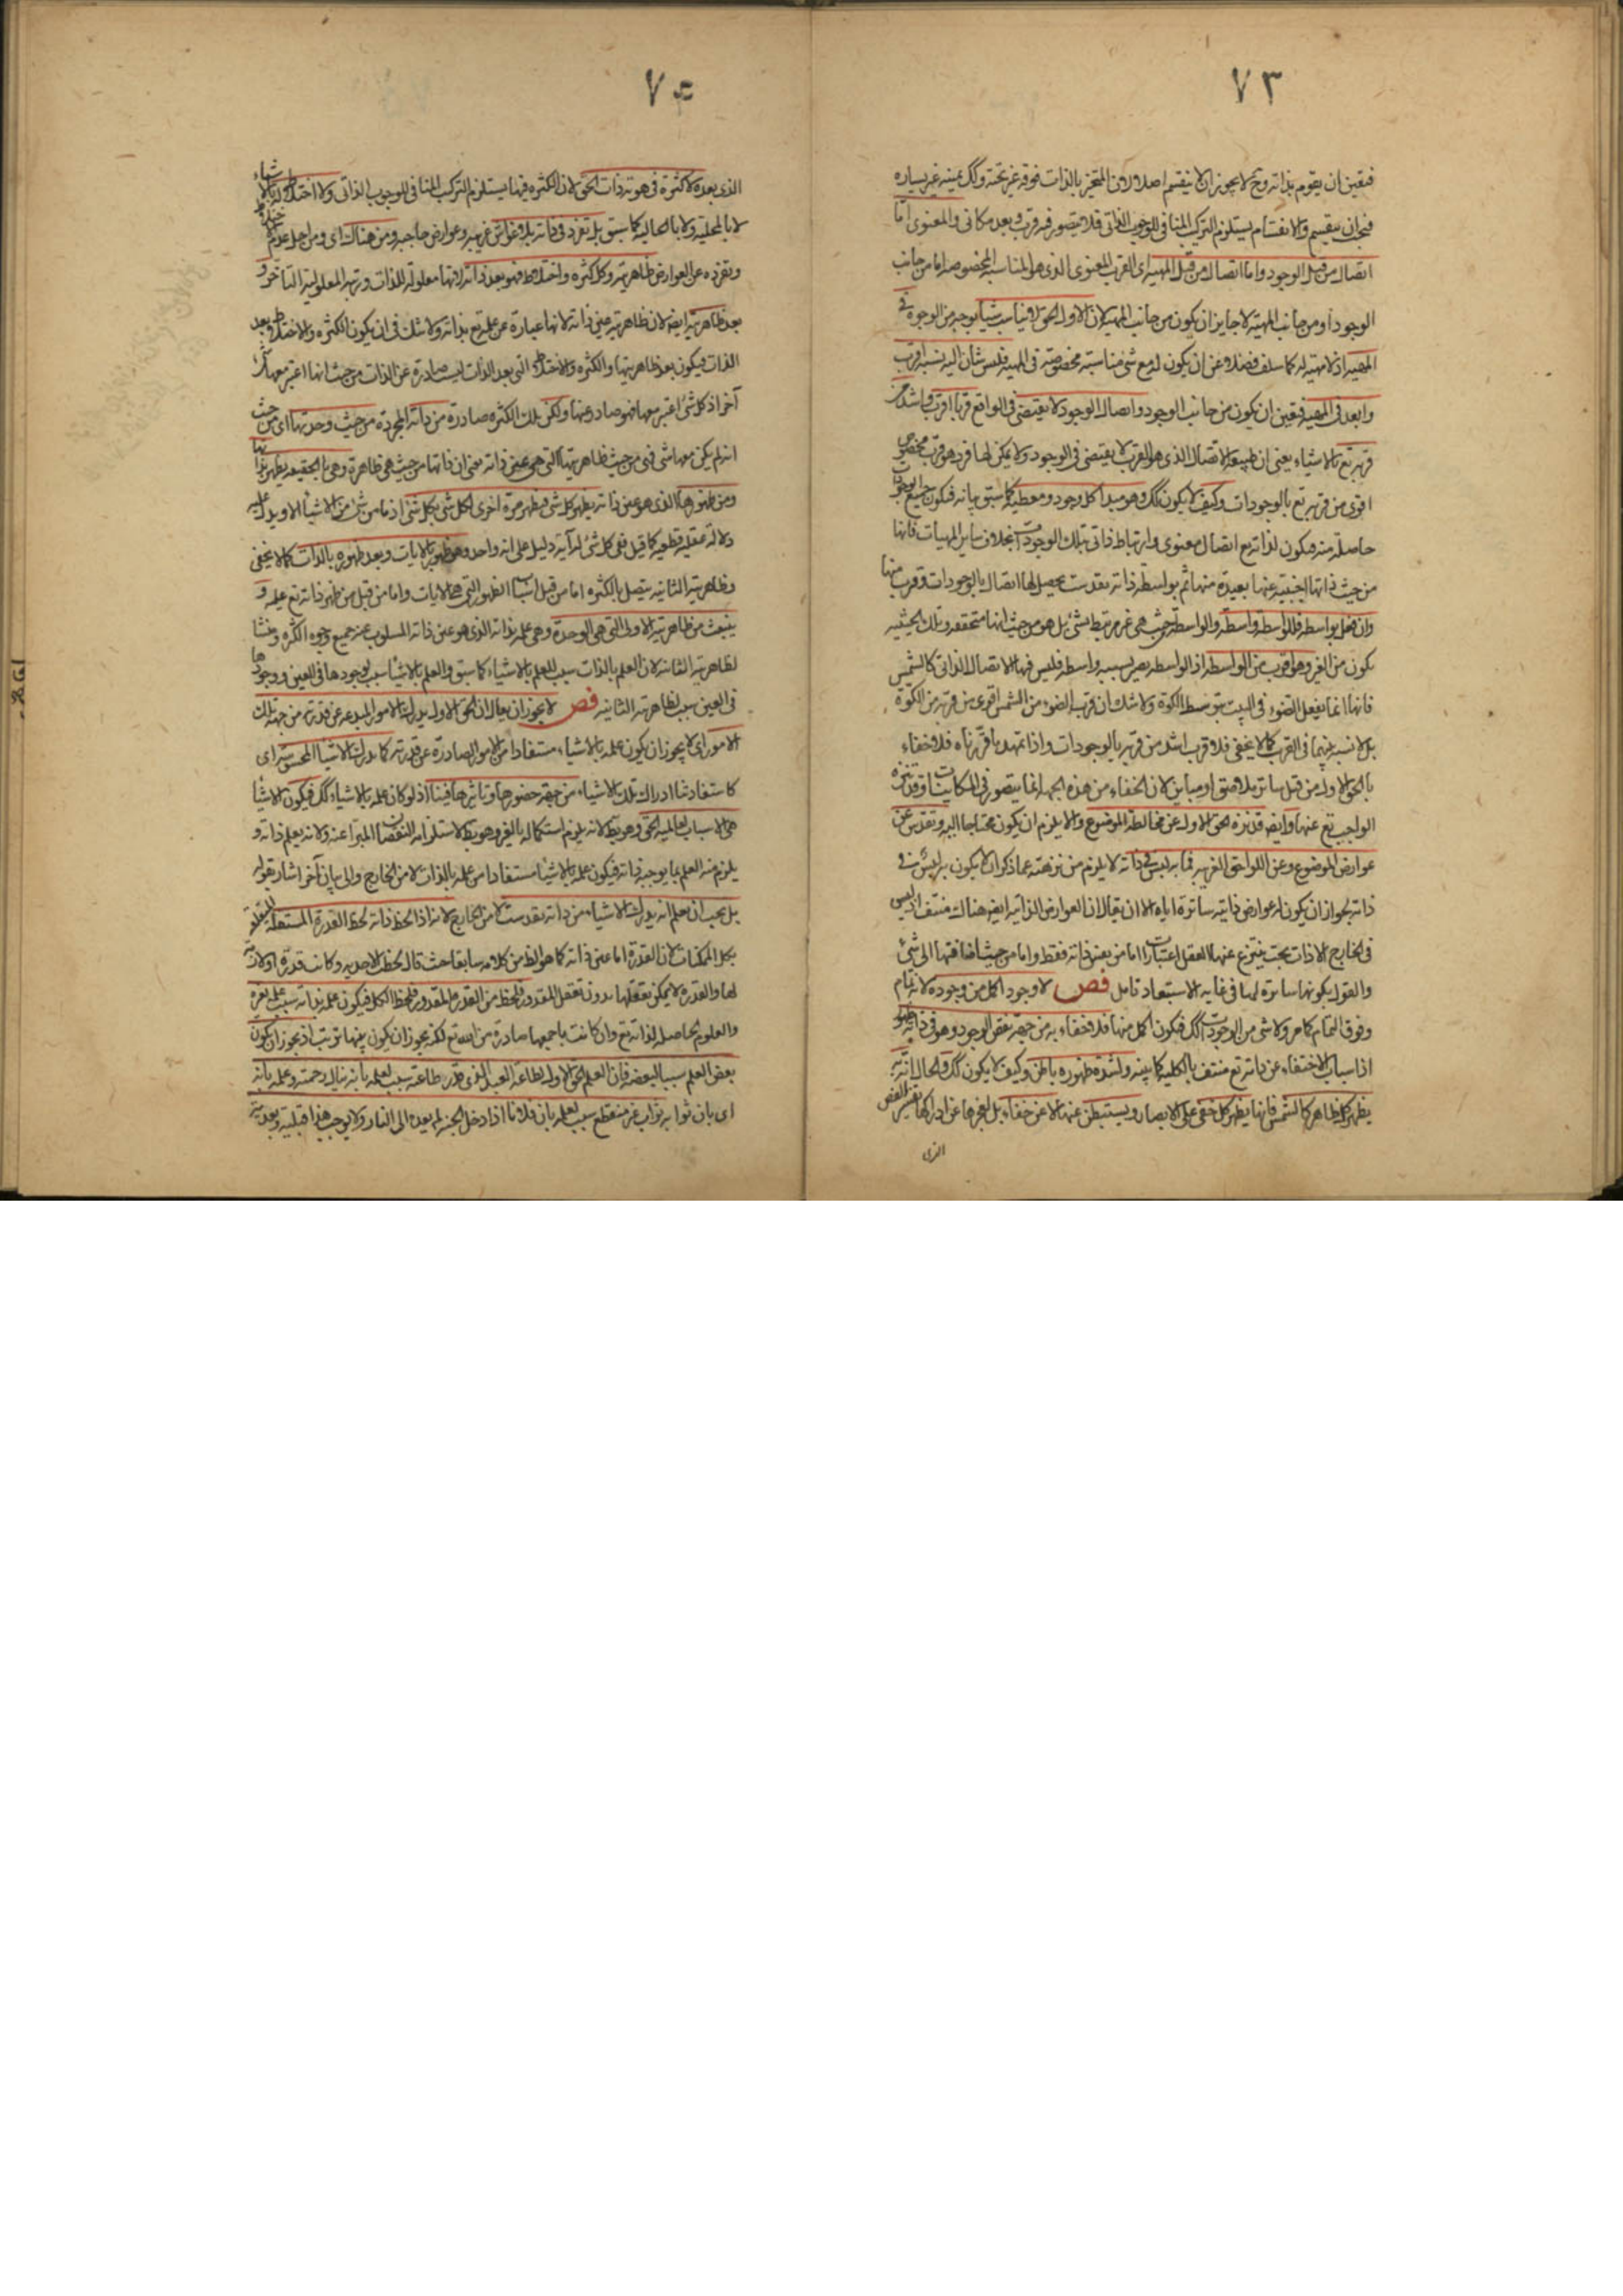 ٧٣
فتعين ان يقوم بذاته وح لا يجوز ان ينقسم اصلا لان المتحيز بالذات فوقه غير تحته وكك يمينه غير يساره
فيجب ان ينقسم والانقسام يستلزم التركب المنافى للوجوب الذاتى فلا يتصور فيه قرب وبعد مكانى والمعنوى اما
اتصال من قبل الوجود واما اتصال من قبل المهية اى القرب المعنوى الذى هو المناسبة المخصوصة اما من جانب
الوجود او من جانب المهية لا جايز ان يكون من جانب المهية لان الاول الحق لا يناسب شيأ بوجه من الوجوه فى
المهية اذ لا مهية له كما سلف فضلا عن ان يكون له مع شئ مناسبة مخصوصة فى المهية فليس شئ اليه نسبة اقرب
وابعد فى المهية فتعين ان يكون من جانب الوجود واتصال الوجود لا يقتضى فى الواقع قربا اقرب واشد من
قربه تع بالاشياء يعنى ان طبيعة الاتصال الذى هو القرب لا يقتضى فى الوجود ولا يمكن لها فرد هو قرب مخصوص
اقوى من قربه تع بالوجودات وكيف لا يكون كك وهو مبدأ كل وجود ومعطيه كما سبق بيانه فيكون جميع الوجودات
حاصلة منه فيكون لذاته مع اتصال معنوى وارتباط ذاتى بتلك الوجودات بخلاف ساير المهيات فانها
من حيث ذاتها اجنبية عنها بعيدة منها ثم بواسطة ذاته تقدست يحصل لها اتصال بالوجودات وقرب منها
وان فعل بواسطة فللواسطة واسطة والواسطة من حيث هى غير مرتبط بشئ بل هو من حيث انها متحققة وتلك الحيثية
يكون من الغير وهو اقرب من الواسطة اذ الواسطة يصير بسببه واسطة فليس فيها الاتصال الذاتى كالشمس
فانها انما يفعل الضوء فى البيت بتوسط الكوة ولا شك ان قرب الضوء من الشمس اقوى من قربه من الكوة
بل لا نسبة بينهما فى القرب كما لا يخفى فلا قرب اشد من قربه بالوجودات واذا تمهد ما قررناه فلا خفاء
بالحق الاول من قبل ساتر ملاصق او مباين لان الخفاء من هذه الجهة انما يتصور فى المكانيات وقد تنزه
الواجب تع عنها وايضه قد تنزه الحق الاول عن مخالطة الموضوع والا يلزم ان يكون محتاجا اليه وتقدس عن
عوارض الموضوع وعن اللواحق الغريبة فما به لبس فى ذاته لا يلزم من تنزهه عما ذكر ان لا يكون به لبس فى
ذاته لجواز ان يكون له عوارض ذاتية ساترة اياه الا ان يقال ان العوارض الذاتية ايضه هناك منتف اذ ليس
فى الخارج الا ذات بحت ينتزع عنها العقل اعتبارات اما من نفس ذاته فقط واما من حيث اضافتها الى شئ
والقول بكونها ساترة لها فى غاية الاستبعاد تامل فص لا وجود اكمل من وجوده لانه تام
وفوق التمام كما مر ولا شئ من الوجودات كك فيكون اكمل منها فلا خفاء به من جهة نقص الوجود وهو فى ذاته ظهور
اذ اسباب الاختفاء عن ذاته تع منتف بالكلية كما بينه ولشدة ظهوره باطن وكيف لا يكون كك والحال انه به
يظهر كل ظاهر كالشمس فانها يظهر كل خفى على الابصار ويستبطن عنها لا عن خفاء بل لعجزها عن ادراكها تفسير الفص
الذى
٧٤
الذى بعده لا كثرة فى هوية ذات الحق لان الكثرة فيها يستلزم التركب المنافى للوجوب الذاتى ولا اختلاط له بالاشياء
لا بالمحلية ولا بالحالية كما سبق بل تفرد فى ذاته بلا غواش غريبة وعوارض حاجبة ومن هناك اى ومن اجل عدم اختلاط
وتفرده عن العوارض ظاهريته وكل كثرة واختلاط فهو بعد ذاته لانها معلولة للذات ورتبة المعلولية التاخر و
بعد ظاهريته ايضه لان ظاهريته عين ذاته لانها عبارة عن علمه تع بذاته ولا شك فى ان يكون الكثرة والاختلاط بعد
الذات فيكون بعد ظاهريتها والكثرة والاختلاط التى بعد الذات ليست صادرة عن الذات من حيث انها اعتبر معها امر
آخر اذ كل شئ اعتبر معها فهو صادر عنها ولكن تلك الكثرة صادرة من ذاته المجردة من حيث وحدتها اى من حيث
انه لم يكن معها شئ فهى من حيث ظاهريتها التى هى عين ذاته يعنى ان ذاتها من حيث هى ظاهرة وهى بالحقيقة يظهر بذاتها
ومن ظهورها الذى هو عين ذاته يظهر كل شئ فيظهر مرة اخرى لكل شئ بكل شئ اذ ما من شئ من الاشياء الا ويدل عليه
دلالة عقلية قطعية كما قيل ففى كل شئ له آية دليل على انه واحد وهو ظهور بالايات وبعد ظهوره بالذات كما لا يخفى
وظاهريته الثانية يتصل بالكثرة اما من قبل اسباب الظهور التى هى الايات واما من قبل من ظهر ذاته تع عليه و
ينبعث من ظاهريته الاولى التى هى الوحدة وهى علمه بذاته الذى هو عين ذاته المسلوب عنه جميع وجوه الكثرة ومنشأ
لظاهريته الثانية لان العلم بالذات سبب للعلم بالاشياء كما سبق والعلم بالاشياء سبب لوجودها فى العين ووجودها
فى العين سبب لظاهريته الثانية فص لا يجوز ان يقال ان الحق الاول يدرك الامور المبدعة عن قدرته من جهة تلك
الامور اى لا يجوز ان يكون علمه بالاشياء مستفادا من الامور الصادرة عن قدرته كما ندرك الاشياء المحسوسة اى
كاستفادتنا ادراك تلك الاشياء من جهة حضورها وتاثيرها فينا اذ لو كان علمه بالاشياء كك فيكون الاشياء
هى الاسباب لعالمية الحق وهو بط لانه يلزم استكماله بالغير وهو بط لاستلزامه النقصان المبرأ عنه ولانه يعلم ذاته و
يلزم منه العلم بما يوجبه ذاته فيكون علمه بالاشياء مستفادا من علمه بالذات لا من الخارج والى بيان آخر اشار بقوله
بل يجب ان يعلم انه يدرك الاشياء من ذاته تقدست لا من الخارج لانه اذا لحظ ذاته لحظ القدرة المستعلية المتعلقة
بكل الممكنات لان القدرة اما عين ذاته كما هو الظ من كلامه سابقا حيث قال لحظت الاحدية وكانت قدرة او لازمة
لها والقدرة لا يمكن تعقلها بدون تعقل المقدور فلحظ من القدرة المقدور فلحظ الكل فيكون علمه بذاته سبب علمه بغيره
والعلوم الحاصلة لذاته تع وان كانت باجمعها صادرة من ذاته تع لكنه يجوز ان يكون بينها ترتب اذ يجوز ان يكون
بعض العلم سببا لبعضه فان العلم الحق الاول بطاعة العبد الذى قدر طاعته سبب لعلمه بانه ينال رحمته وعلمه بانه
اى بان ثوابه ثواب غير منقطع سبب لعلمه بان فلانا اذا دخل الجنة لم يعده الى النار ولا يوجب هذا قبلية وبعدية